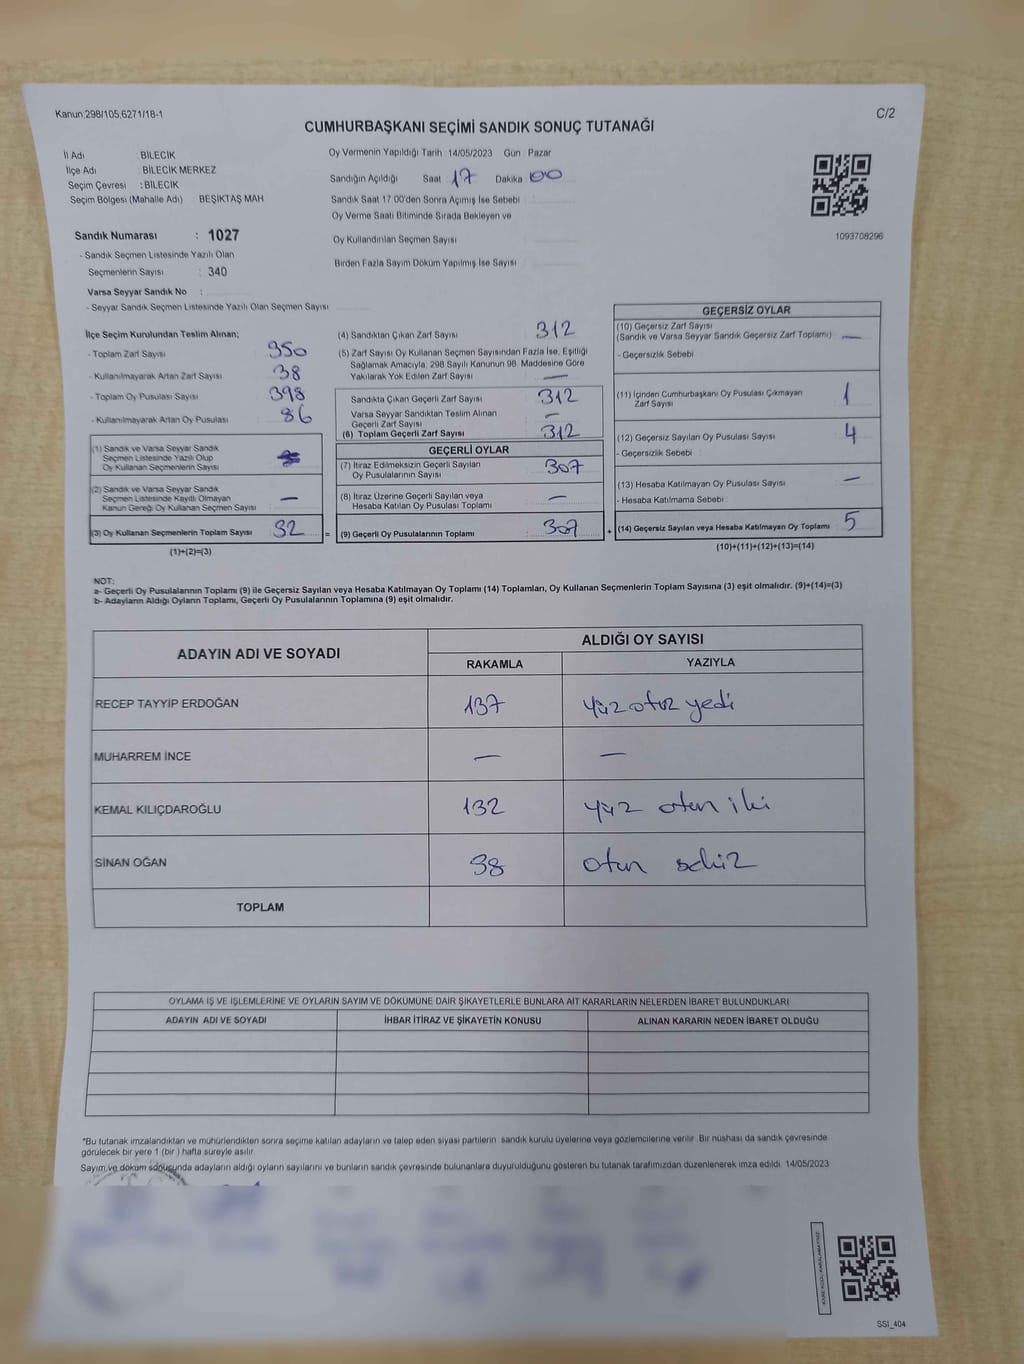 Kanun;298/105,6271/18-1
C/2
CUMHURBAŞKANI SEÇİMİ SANDIK SONUÇ TUTANAĞI
İl Adı : BİLECİK
İlçe Adı : BİLECİK MERKEZ
Seçim Çevresi : BİLECİK
Seçim Bölgesi (Mahalle Adı) BEŞİKTAŞ MAH
Sandık Numarası : 1027
- Sandık Seçmen Listesinde Yazılı Olan
Seçmenlerin Sayısı : 340
Varsa Seyyar Sandık No :
- Seyyar Sandık Seçmen Listesinde Yazılı Olan Seçmen Sayısı
Oy Vermenin Yapıldığı Tarih :14/05/2023 Gün : Pazar
Sandığın Açıldığı Saat 17 Dakika 00
Sandık Saat 17 00'den Sonra Açımış İse Sebebi
Oy Verme Saati Bitiminde Sırada Bekleyen ve
Oy Kullandırılan Seçmen Sayısı
Birden Fazla Sayım Döküm Yapılmış İse Sayısı
1093708296
İlçe Seçim Kurulundan Teslim Alınan;
- Toplam Zarf Sayısı 350
- Kullanılmayarak Artan Zarf Sayısı 38
- Toplam Oy Pusulası Sayısı 398
- Kullanılmayarak Artan Oy Pusulası 86
(1) Sandık ve Varsa Seyyar Sandık
Seçmen Listesinde Yazılı Olup
Oy Kullanan Seçmenlerin Sayısı
(2) Sandık ve Varsa Seyyar Sandık
Seçmen Listesinde Kayıtlı Olmayan
Kanun Gereği Oy Kullanan Seçmen Sayısı —
(3) Oy Kullanan Seçmenlerin Toplam Sayısı =
(1)+(2)=(3)
(4) Sandıktan Çıkan Zarf Sayısı 312
(5) Zarf Sayısı Oy Kullanan Seçmen Sayısından Fazla İse, Eşitliği
Sağlamak Amacıyla, 298 Sayılı Kanunun 98. Maddesine Göre
Yakılarak Yok Edilen Zarf Sayısı —
Sandıkta Çıkan Geçerli Zarf Sayısı 312
Varsa Seyyar Sandıktan Teslim Alınan
Geçerli Zarf Sayısı —
(6) Toplam Geçerli Zarf Sayısı 312
GEÇERLİ OYLAR
(7) İtiraz Edilmeksizin Geçerli Sayılan
Oy Pusulalarının Sayısı 307
(8) İtiraz Üzerine Geçerli Sayılan veya
Hesaba Katılan Oy Pusulası Toplamı —
(9) Geçerli Oy Pusulalarının Toplamı 307 +
GEÇERSİZ OYLAR
(10) Geçersiz Zarf Sayısı
(Sandık ve Varsa Seyyar Sandık Geçersiz Zarf Toplamı) —
- Geçersizlik Sebebi
(11) İçinden Cumhurbaşkanı Oy Pusulası Çıkmayan
Zarf Sayısı 1
(12) Geçersiz Sayılan Oy Pusulası Sayısı 4
- Geçersizlik Sebebi
(13) Hesaba Katılmayan Oy Pusulası Sayısı —
- Hesaba Katılmama Sebebi
(14) Geçersiz Sayılan veya Hesaba Katılmayan Oy Toplamı 5
(10)+(11)+(12)+(13)=(14)
NOT:
a- Geçerli Oy Pusulalarının Toplamı (9) ile Geçersiz Sayılan veya Hesaba Katılmayan Oy Toplamı (14) Toplamları, Oy Kullanan Seçmenlerin Toplam Sayısına (3) eşit olmalıdır. (9)+(14)=(3)
b- Adayların Aldığı Oyların Toplamı, Geçerli Oy Pusulalarının Toplamına (9) eşit olmalıdır.
ADAYIN ADI VE SOYADI ALDIĞI OY SAYISI
RAKAMLA YAZIYLA
RECEP TAYYİP ERDOĞAN 137 yüz otuz yedi
MUHARREM İNCE — —
KEMAL KILIÇDAROĞLU 132 yüz otuz iki
SİNAN OĞAN 38 otuz sekiz
TOPLAM
OYLAMA İŞ VE İŞLEMLERİNE VE OYLARIN SAYIM VE DÖKÜMÜNE DAİR ŞİKAYETLERLE BUNLARA AİT KARARLARIN NELERDEN İBARET BULUNDUKLARI
ADAYIN ADI VE SOYADI İHBAR İTİRAZ VE ŞİKAYETİN KONUSU ALINAN KARARIN NEDEN İBARET OLDUĞU
*Bu tutanak imzalandıktan ve mühürlendikten sonra seçime katılan adayların ve talep eden siyasi partilerin sandık kurulu üyelerine veya gözlemcilerine verilir. Bir nushası da sandık çevresinde
görülecek bir yere 1 (bir ) hafta süreyle asılır.
Sayım ve döküm sonucunda adayların aldığı oyların sayılarını ve bunların sandık çevresinde bulunanlara duyurulduğunu gösteren bu tutanak tarafımızdan düzenlenerek imza edildi. 14/05/2023
SSİ_404